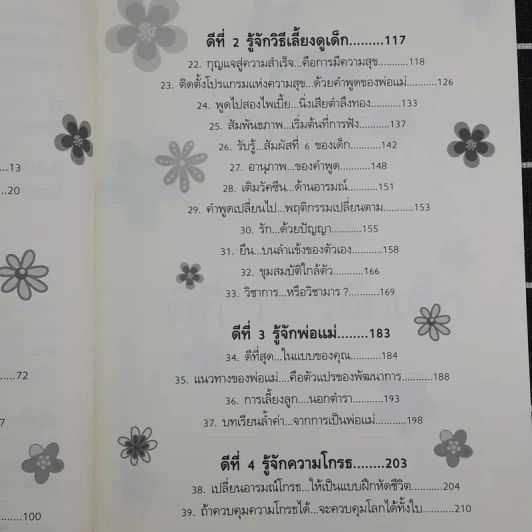 ...13
...20
.....72
7
........100
ดีที่ 2 รู้จักวิธีเลี้ยงดูเด็ก.........117
22. กุญแจสู่ความสำเร็จ...คือการมีความสุข...........118
23. ติดตั้งโปรแกรมแห่งความสุข...ด้วยคำพูดของพ่อแม่...........126
24. พูดไปสองไพเบี้ย...นิ่งเสียตำลึงทอง...........133
25. สัมพันธภาพ...เริ่มต้นที่การฟัง...........137
26. รับรู้...สัมผัสที่ 6 ของเด็ก...........142
27. อานุภาพ...ของคำพูด...........148
28. เติมวัคซีน...ด้านอารมณ์...........151
29. คำพูดเปลี่ยนไป...พฤติกรรมเปลี่ยนตาม...........153
30. รัก...ด้วยปัญญา...........155
31. ยืน...บนลำแข้งของตัวเอง...........158
32. ขุมสมบัติใกล้ตัว...........166
33. วิชาการ...หรือวิชามาร ?...........169
ดีที่ 3 รู้จักพ่อแม่........183
34. ดีที่สุด...ในแบบของคุณ...........184
35. แนวทางของพ่อแม่....คือตัวแปรของพัฒนาการ...........188
36. การเลี้ยงลูก....นอกตำรา...........193
37. บทเรียนล้ำค่า...จากการเป็นพ่อแม่...........198
ดีที่ 4 รู้จักความโกรธ........203
38. เปลี่ยนอารมณ์โกรธ...ให้เป็นแบบฝึกหัดชีวิต...........204
39. ถ้าควบคุมความโกรธได้...จะควบคุมโลกได้ทั้งใบ...........210